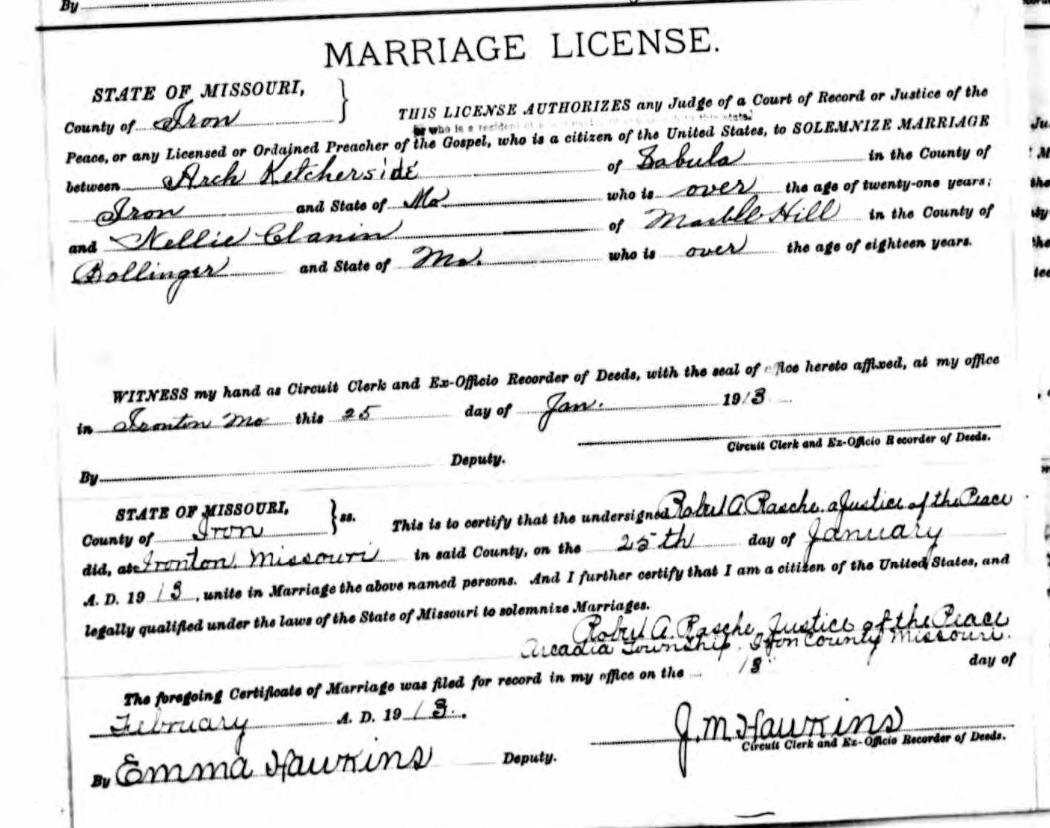 By
MARRIAGE LICENSE.
STATE OF MISSOURI,
County of Iron
THIS LICENSE AUTHORIZES any Judge of a Court of Record or Justice of the
or who is a resident of this state
Peace, or any Licensed or Ordained Preacher of the Gospel, who is a citizen of the United States, to SOLEMNIZE MARRIAGE
between Arch Ketcherside of Sabula in the County of
Iron and State of Mo who is over the age of twenty-one years;
and Nellie Clanin of Marble Hill in the County of
Bollinger and State of Mo. who is over the age of eighteen years.
WITNESS my hand as Circuit Clerk and Ex-Officio Recorder of Deeds, with the seal of office hereto affixed, at my office
in Ironton Mo this 25 day of Jan. 1913
Circuit Clerk and Ex-Officio Recorder of Deeds.
By Deputy.
STATE OF MISSOURI,
County of Iron } ss. This is to certify that the undersigned Robert A. Rasche. a Justice of the Peace
did, at Ironton, Missouri in said County, on the 25th day of January
A. D. 1913, unite in Marriage the above named persons. And I further certify that I am a citizen of the United States, and
legally qualified under the laws of the State of Missouri to solemnize Marriages.
Robert A. Rasche, Justice of the Peace
Arcadia Township. Iron County Missouri.
The foregoing Certificate of Marriage was filed for record in my office on the 18 day of
February A. D. 1913.
J. M. Hawkins
Circuit Clerk and Ex-Officio Recorder of Deeds.
By Emma Hawkins Deputy.